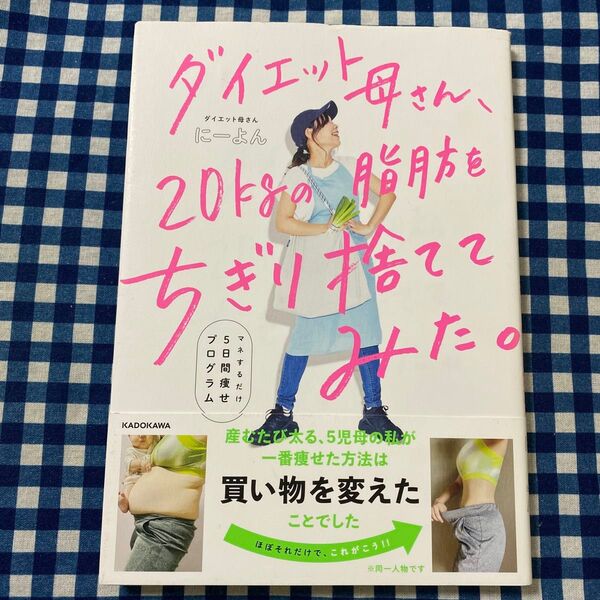 ダイエット母さん、
ダイエット母さん
にーよん
20kgの脂肪を
ちぎり捨てて
みた。
マネするだけ
5日間痩せ
プログラム
KADOKAWA
産むたび太る、5児母の私が
一番痩せた方法は
買い物を変えた
ことでした
ほぼそれだけで、これがこう!!
※同一人物です